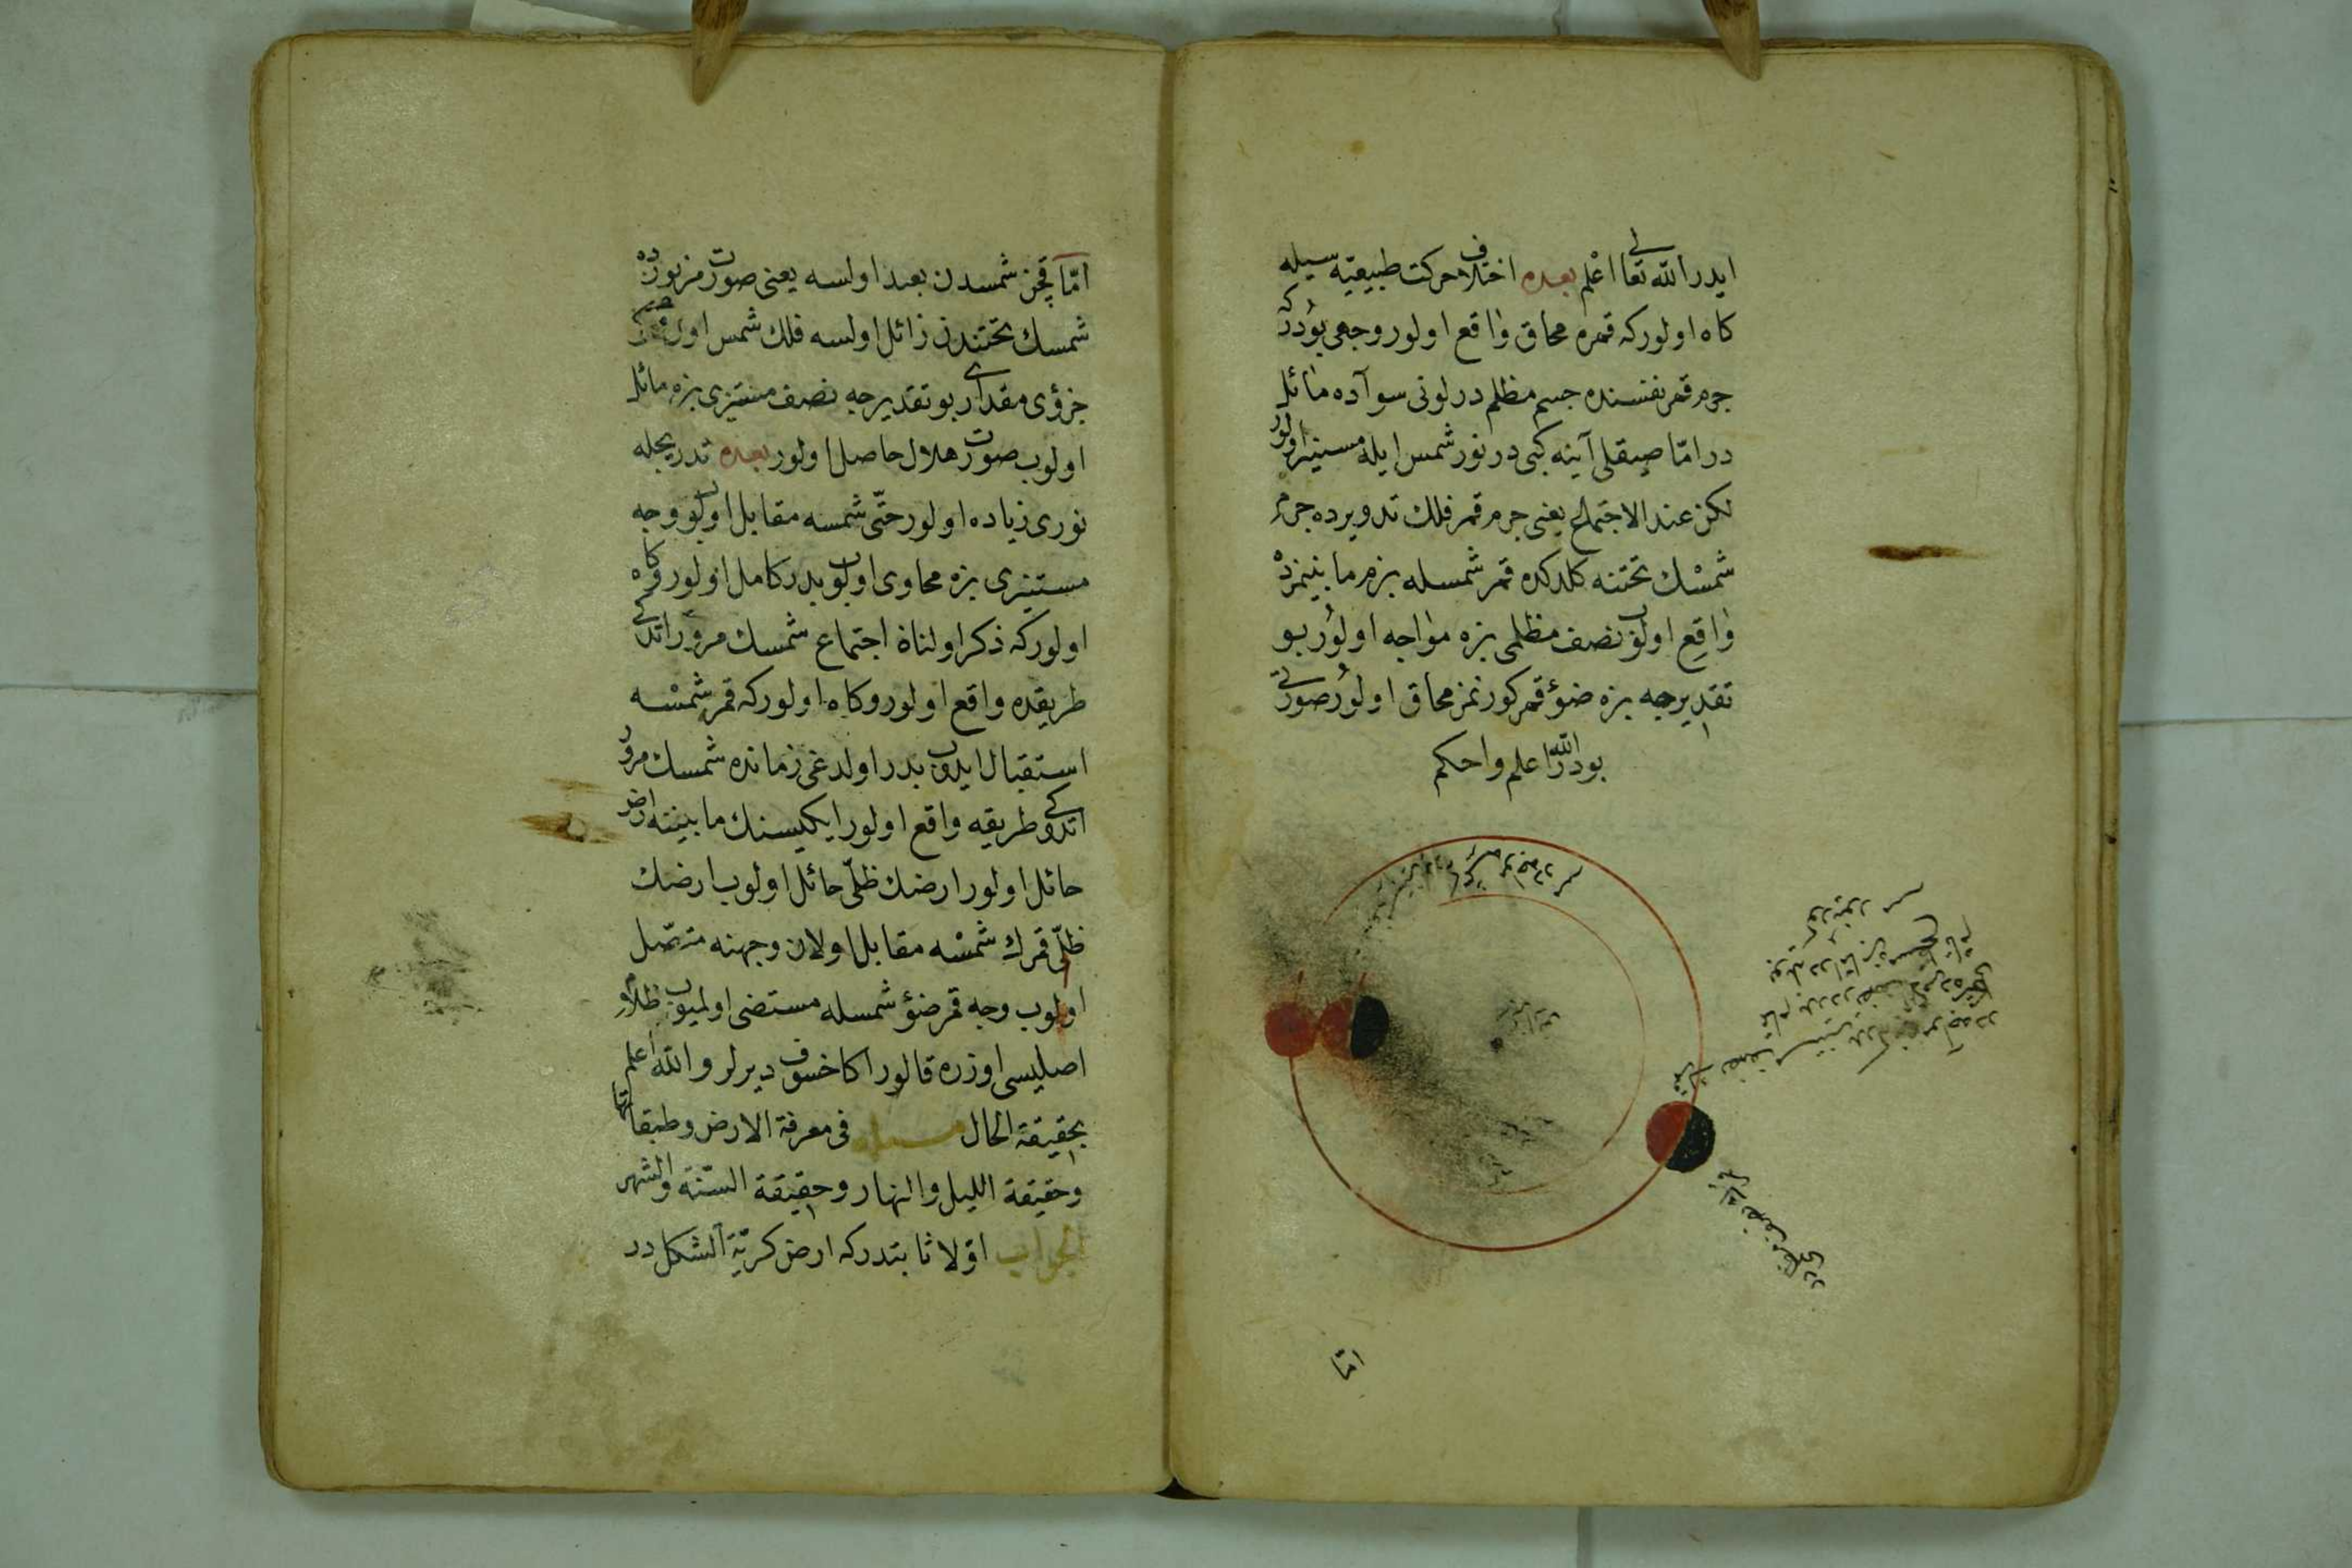 ايدر الله تعالى اعلم بعده اختلاف حركت طبيعيّه سيله
كاه اولور كه قمره محاق واقع اولور وجهى بودر كه
جرم قمر نفسنده جسم مظلم در لونى سواده مائل
در امّا صيقلى آينه كبى در نور شمس ايله مستنير اولور
لكن عند الاجتماع يعنى جرم قمر فلك تدويرده جرم
شمسك تحتنه كلدكده قمر شمسله بزم مابينمزده
واقع اولوب نصف مظلمى بزه مواجه اولور بو
تقديرجه بزه ضوء قمر كورنمز محاق اولور صورتى
بودر الله اعلم واحكم
امّا
امّا قچن شمسدن بعيد اولسه يعنى صورت مزبورده
شمسك تحتندن زائل اولسه فلك شمس اون
جزؤى مقدارى بو تقديرجه نصف مستنيرى بزه مائل
اولوب صورت هلال حاصل اولور بعده تدريجله
نورى زياده اولور حتّى شمسه مقابل اولوب وجه
مستنيرى بزه محاوى اولوب بدر كامل اولور وكاه
اولور كه ذكر اولنان اجتماع شمسك مرور اتدكى
طريقده واقع اولور وكاه اولور كه قمر شمسه
استقبال ايدوب بدر اولدغى زمانده شمسك مرور
اتدوكى طريقه واقع اولور ايكيسنك مابيننه ارض
حائل اولور ارضك ظلّى حائل اولوب ارضك
ظلّى قمرك شمسه مقابل اولان وجهنه متصل
اولوب وجه قمر ضوء شمسله مستضى اولميوب ظلام
اصليسى اوزره قالور اكا خسوف ديرلر والله اعلم
بحقيقة الحال مسئله فى معرفة الارض وطبقاتها
وحقيقة الليل والنهار وحقيقة السنّة والشهر
الجواب اوّلا ثابتدر كه ارض كريّة الشكل در